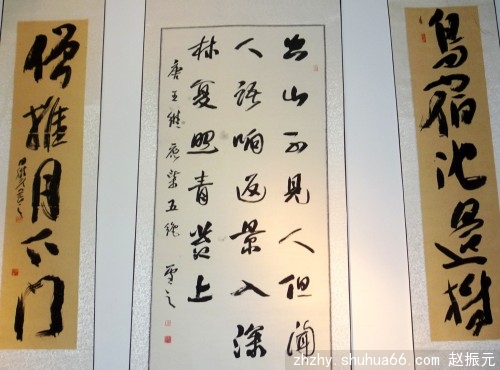 鳥宿池邊樹
空山不见人但闻
人语响返景入深
林复照青苔上
唐王维鹿柴五绝
僧推月下门
zhzhy.shuhua66.com 赵振元